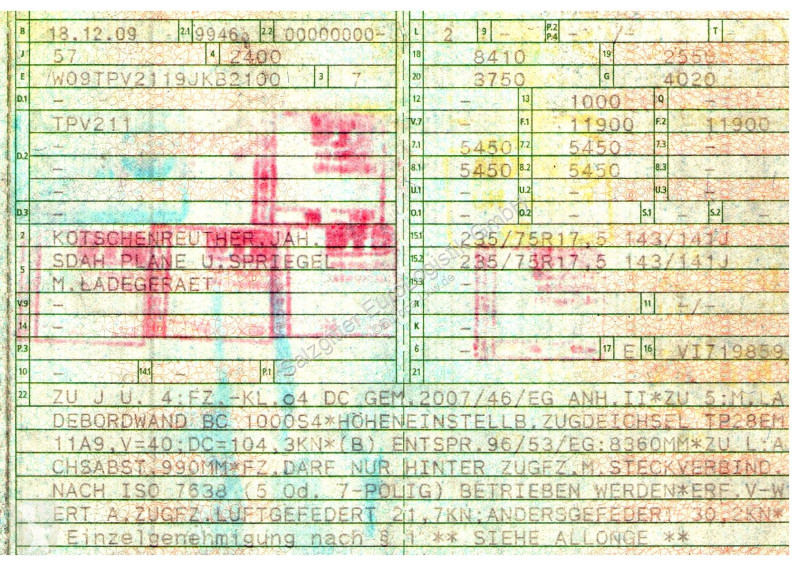 B 18.12.09 2.1 9946 2.2 00000000- L 2 9 - P.2 P.4 - /- T -
J 57 4 2400 18 8410 19 2550
E W09TPV2119JKB2100 3 7 20 3750 G 4020
D.1 - 12 - 13 1000 Q -
TPV211 V.7 - F.1 11900 F.2 11900
D.2 - 7.1 5450 7.2 5450 7.3 -
- 8.1 5450 8.2 5450 8.3 -
- U.1 - U.2 - U.3 -
D.3 - O.1 - O.2 - S.1 - S.2 -
2 KOTSCHENREUTHER,JAH. 15.1 235/75R17,5 143/141J
5 SDAH PLANE U.SPRIEGEL 15.2 235/75R17,5 143/141J
M.LADEGERAET 15.3 -
V.9 - R - 11 -/-
14 - K -
P.3 - 6 - 17 E 16 VI719859
10 - 14.1 - P.1 - 21
22 ZU J U. 4:FZ.-KL.o4 DC GEM.2007/46/EG ANH.II*ZU 5:M.LA
DEBORDWAND BC 1000S4*HÖHENEINSTELLB.ZUGDEICHSEL TP28EM
11A9,V=40;DC=104,3KN*(B) ENTSPR.96/53/EG:8360MM*ZU L:A
CHSABST.990MM*FZ.DARF NUR HINTER ZUGFZ.M.STECKVERBIND.
NACH ISO 7638 (5 Od. 7-POLIG) BETRIEBEN WERDEN*ERF.V-W
ERT A.ZUGFZ.LUFTGEFEDERT 21,7KN;ANDERSGEFEDERT 30,2KN*
Einzelgenehmigung nach § 1 ** SIEHE ALLONGE **
Salzgitter Eurologistik GmbH